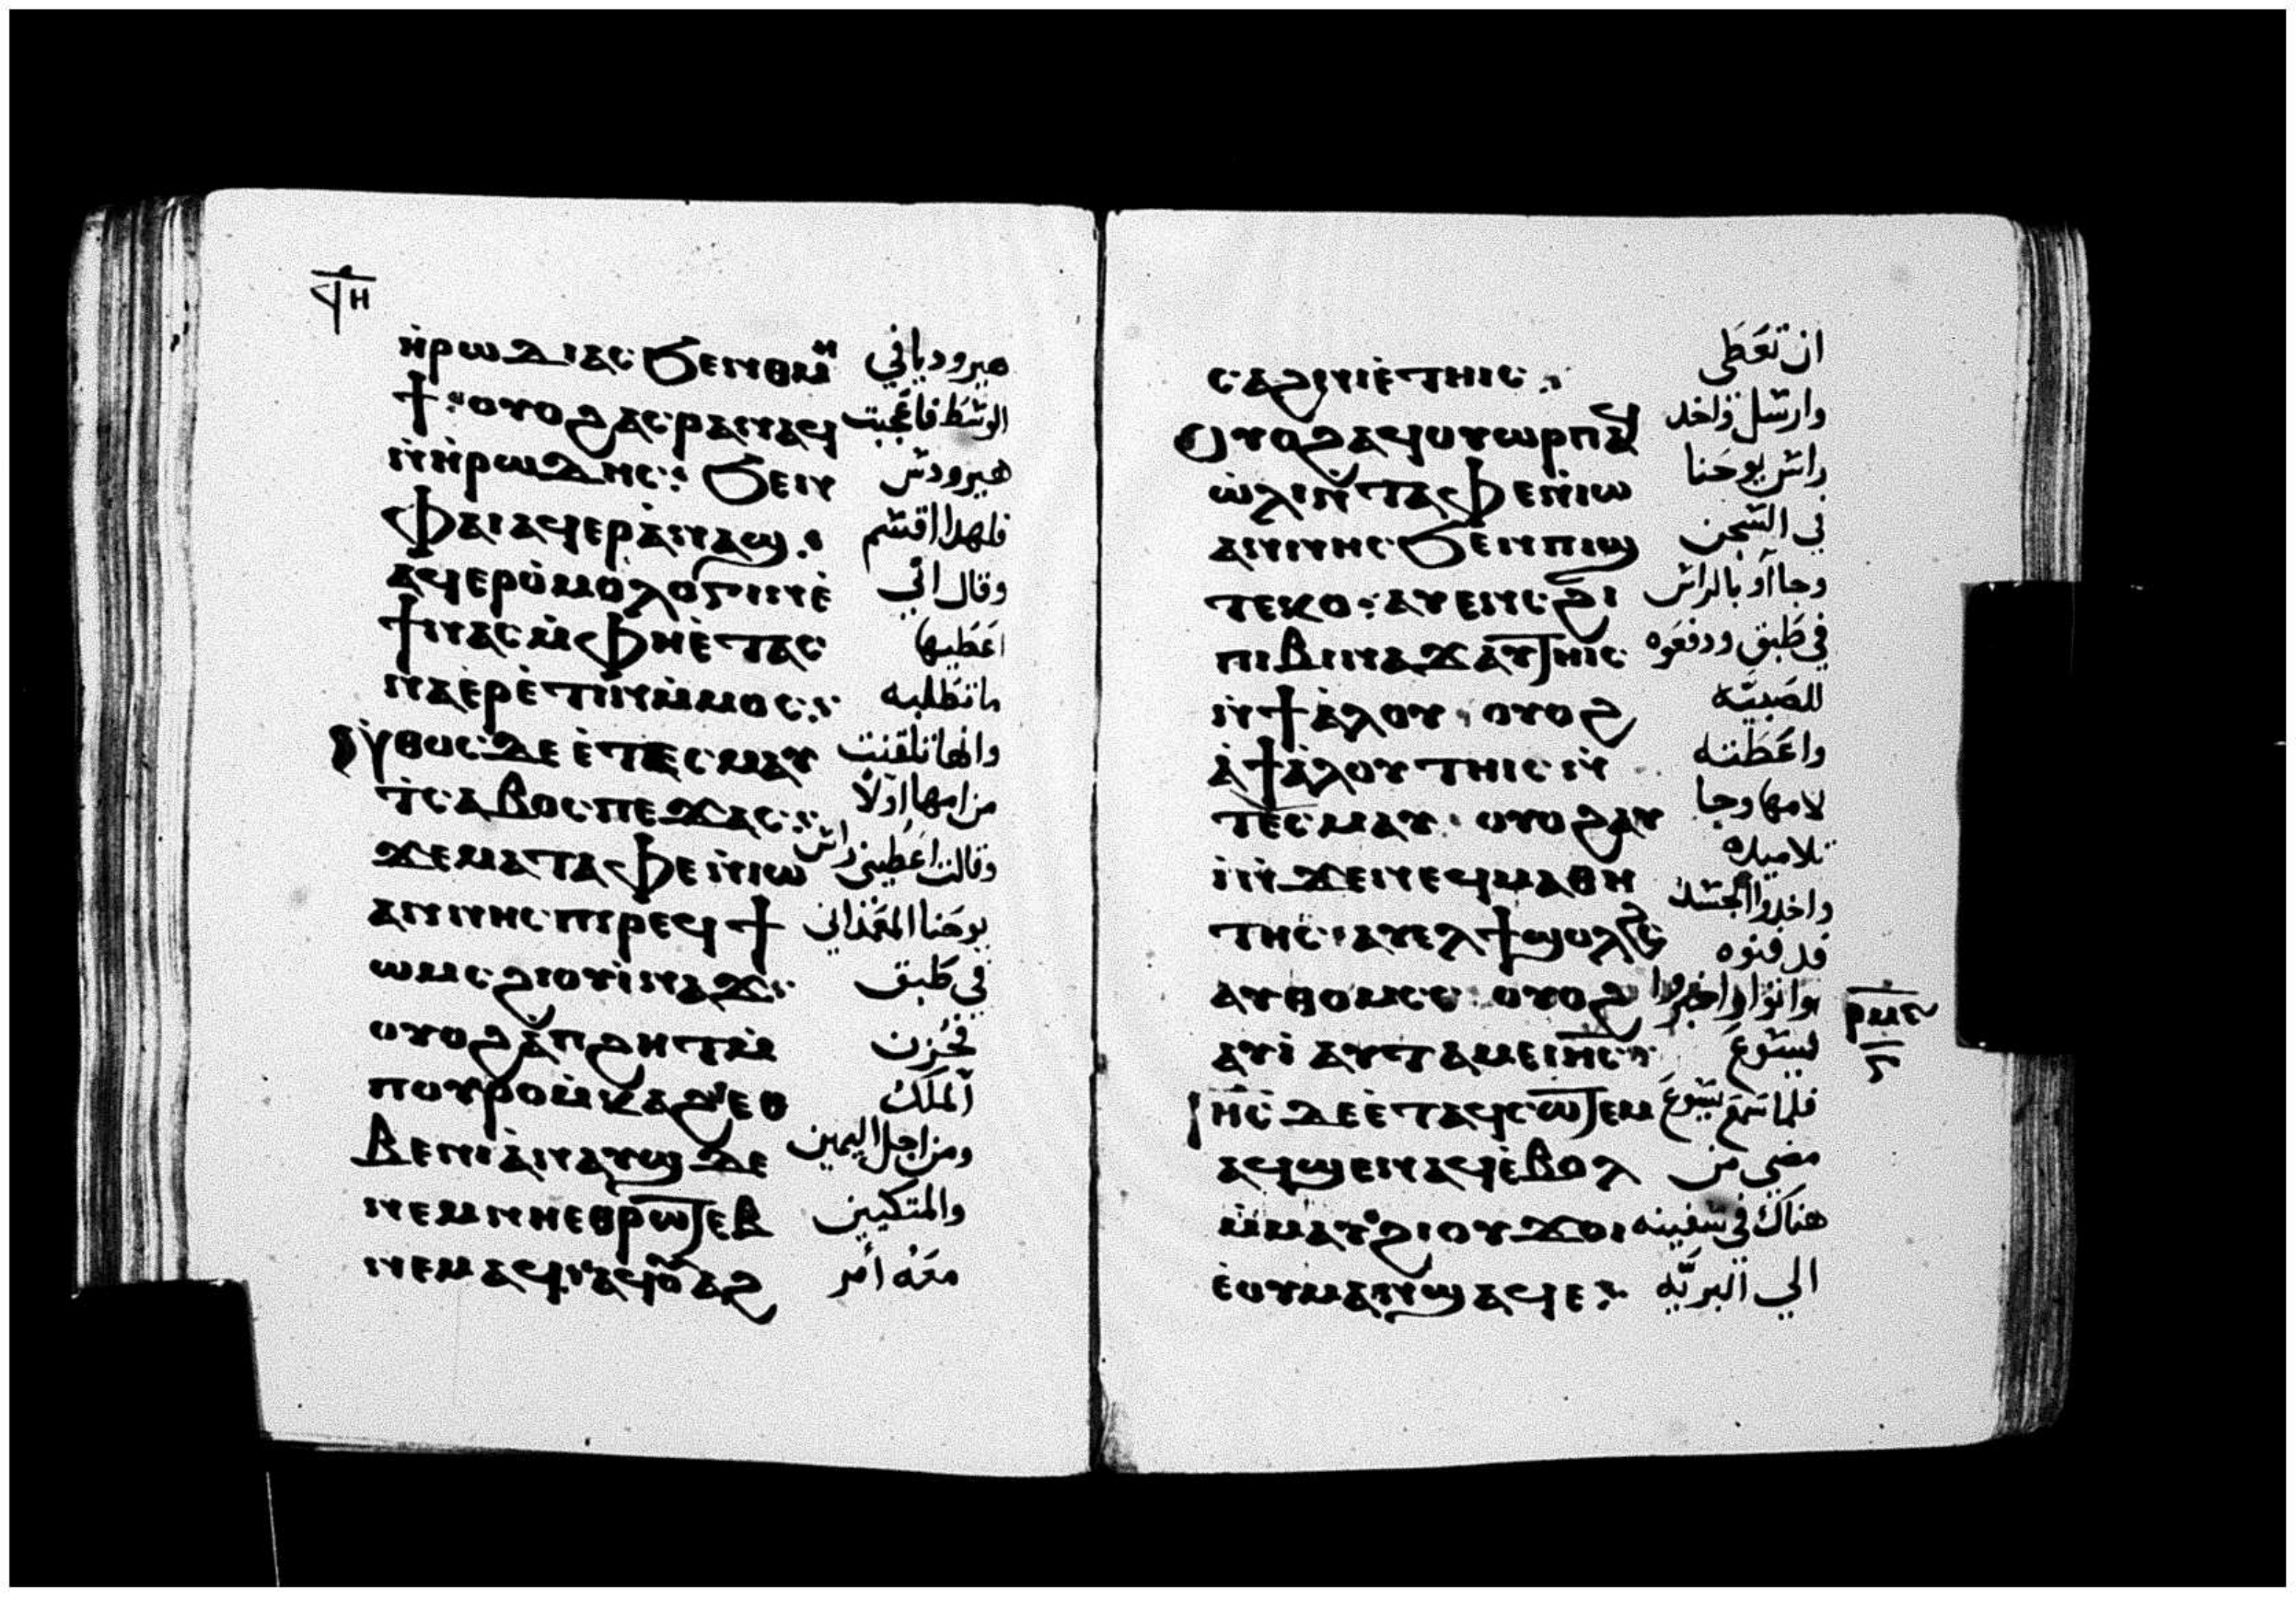 ϤⲎ
ⲏ̀ⲣⲱⲇⲓⲁⲥ ϧⲉⲛ ⲑⲙⲏ هيروديا في
ϯ: ⲟⲩⲟϩ ⲁⲥⲣⲁⲛⲁϥ الوسط فاعجبت
ⲛ̀ⲏ̀ⲣⲱⲇⲏⲥ: ϧⲉⲛ هيرودس
ⲫⲁⲓ ⲁϥⲉⲣⲁ̀ⲛⲁϣ: فلهدا اقسم
ⲁϥⲉⲣⲟ̀ⲙⲟⲗⲟⲅⲓⲛ ⲉ̀ وقال اني
ϯ ⲛⲁⲥ ⲙ̀ⲫⲏ ⲉ̀ⲧⲁⲥ اعطيها
ⲛⲁⲉ̀ⲣⲉ̀ⲧⲓⲛ ⲙ̀ⲙⲟⲥ: ما تطلبه
ⲛ̀ⲑⲟⲥ ⲇⲉ ⲉ̀ⲧⲁ ⲧⲉⲥⲙⲁⲩ وانها تلقنت
ⲧ̀ⲥⲁⲃⲟⲥ ⲡⲉϫⲁⲥ: من امها اولا
ϫⲉ ⲙⲁ ⲧⲁⲫⲉ ⲛ̀ⲓⲱ وقالت اعطيني راس
ⲁⲛⲛⲏⲥ ⲡⲓⲣⲉϥϯ يوحنا المعمداني
ⲱⲙⲥ ϩⲓ ⲟⲩⲃⲓⲛⲁϫ: في طبق
ⲟⲩⲟϩ ⲁ̀ ⲡϩⲏⲧ ⲙ̀ فحزن
ⲡⲟⲩⲣⲟ ⲙ̀ⲕⲁϩ ⲉⲑ الملك
ⲃⲉ ⲡⲓⲁ̀ⲛⲁⲩϣ ⲇⲉ ومن اجل اليمين
ⲛⲉⲙ ⲛⲏⲉⲑⲣⲱⲧⲉⲃ والمتكيين
ⲛⲉⲙⲁϥ: ⲁϥⲟⲩⲁϩ معه امر
ⲥⲁϩⲛⲓ ⲉ̀ⲧⲏⲓⲥ: ان تعطى
ⲟⲩⲟϩ ⲁϥⲟⲩⲱⲣⲡ ⲁϥ وارسل واخد
ⲱ̀ⲗⲓ ⲛ̀ⲧⲁⲫⲉ ⲛ̀ⲓⲱ راس يوحنا
ⲁⲛⲛⲏⲥ ϧⲉⲛ ⲡⲓϣ في السجن
ⲧⲉⲕⲟ: ⲁⲩⲉⲛⲥ ϩⲓ وجااو بالراس
ⲡⲓⲃⲓⲛⲁϫ ⲁⲩⲧⲏⲓⲥ في طبق ودفعوه
ⲛ̀ϯⲁ̀ⲗⲟⲩ: ⲟⲩⲟϩ للصبيه
ⲁ̀ ϯⲁ̀ⲗⲟⲩ ⲧⲏⲓⲥ ⲛ̀ واعطته
ⲧⲉⲥⲙⲁⲩ: ⲟⲩⲟϩ ⲁⲩ لامها وجا
ⲓ̀ ⲛ̀ϫⲉ ⲛⲉϥⲙⲁⲑⲏ تلاميده
ⲧⲏⲥ: ⲁⲩⲉⲗ ϯϣⲟⲗϩⲥ واخدوا الجسد
ⲁⲩⲑⲟⲙⲥⲥ ⲟⲩⲟϩ فدفنوه
ⲁⲩⲓ̀ ⲁⲩⲧⲁⲙⲉ ⲓⲏⲥ: واتوا واخبروا ليسوع
ⲣⲙⲋ
ⲋ
ⲓⲏⲥ ⲇⲉ ⲉ̀ⲧⲁϥⲥⲱⲧⲉⲙ فلما سمع يسوع
ⲁϥϣⲉⲛⲁϥ ⲉ̀ⲃⲟⲗ مضى من
ⲙ̀ⲙⲁⲩ ϩⲓ ⲟⲩϫⲟⲓ هناك في سفينه
ⲉ̀ⲟⲩⲙⲁ ⲛ̀ϣⲁϥⲉ: الي البريه